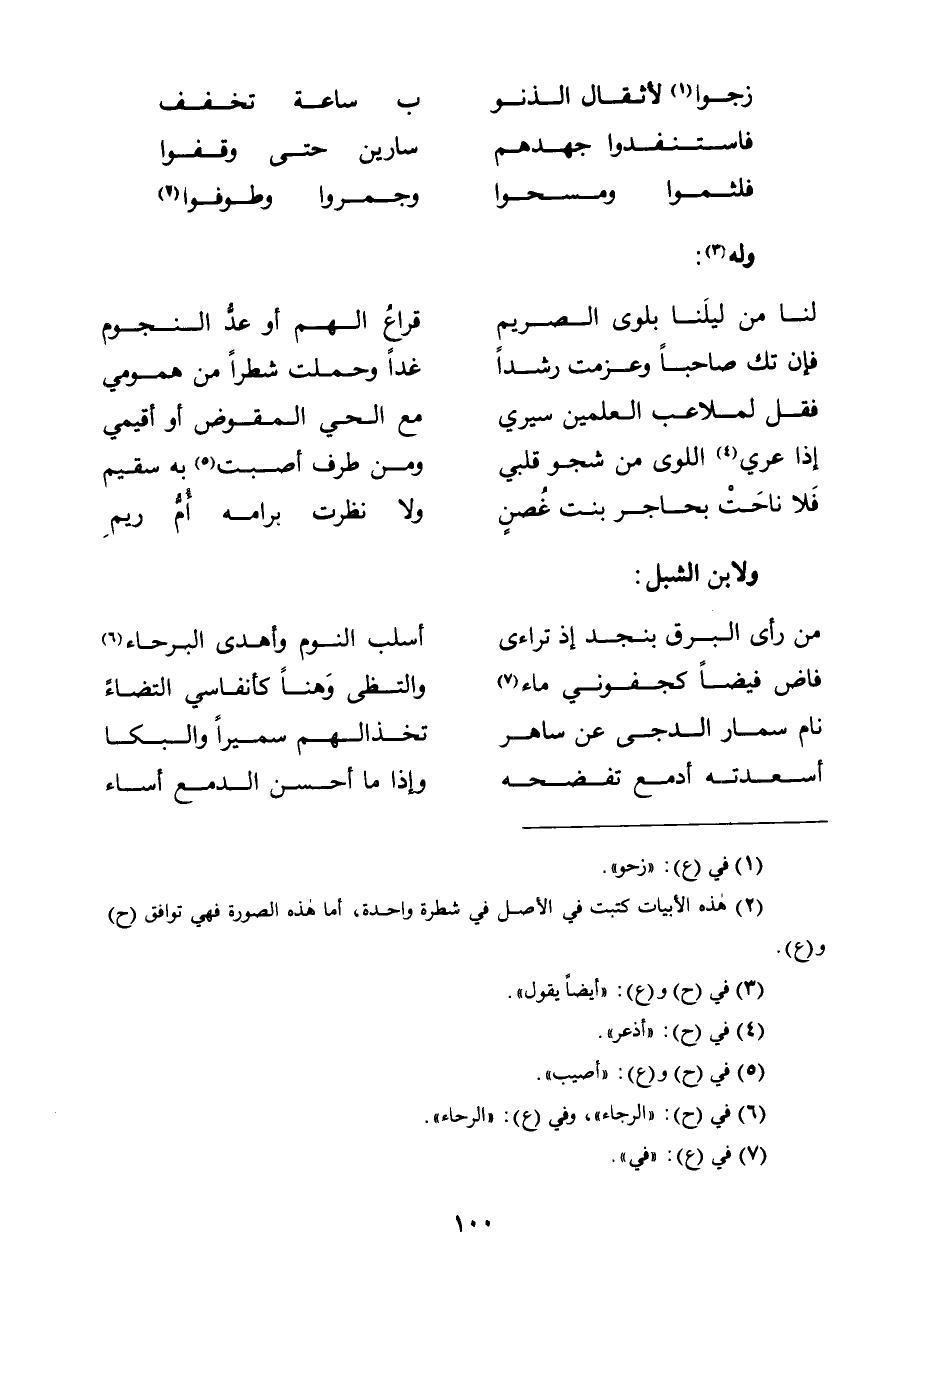 زجوا(١) لأثقال الذنو ب ساعة تخفف
فاستنفدوا جهدهم سارين حتى وقفوا
فلثموا ومسحوا وجمروا وطوفوا(٢)
وله(٣):
لنا من ليلَنا بلوى الصريم قراعُ الهم أو عدُّ النجوم
فإن تك صاحباً وعزمت رشداً غداً وحملت شطراً من همومي
فقل لملاعب العلمين سيري مع الحي المقوض أو أقيمي
إذا عري(٤) اللوى من شجو قلبي ومن طرف أصبت(٥) به سقيم
فَلا ناحَتْ بحاجر بنت غُصنٍ ولا نظرت برامه أُمُّ ريمِ
ولابن الشبل:
من رأى البرق بنجد إذ تراءى أسلب النوم وأهدى البرحاء(٦)
فاض فيضاً كجفوني ماء(٧) والتظى وَهناً كأنفاسي التضاءً
نام سمار الدجى عن ساهر تخذالهم سميراً والبكا
أسعدته أدمع تفضحه وإذا ما أحسن الدمع أساء
(١) في (ع): «زحو».
(٢) هٰذه الأبيات كتبت في الأصل في شطرة واحدة، أما هٰذه الصورة فهي توافق (ح)
و(ع).
(٣) في (ح) و(ع): «أيضاً يقول».
(٤) في (ح): «أذعر».
(٥) في (ح) و(ع): «أصيب».
(٦) في (ح): «الرجاء»، وفي (ع): «الرحاء».
(٧) في (ع): «في».
١٠٠